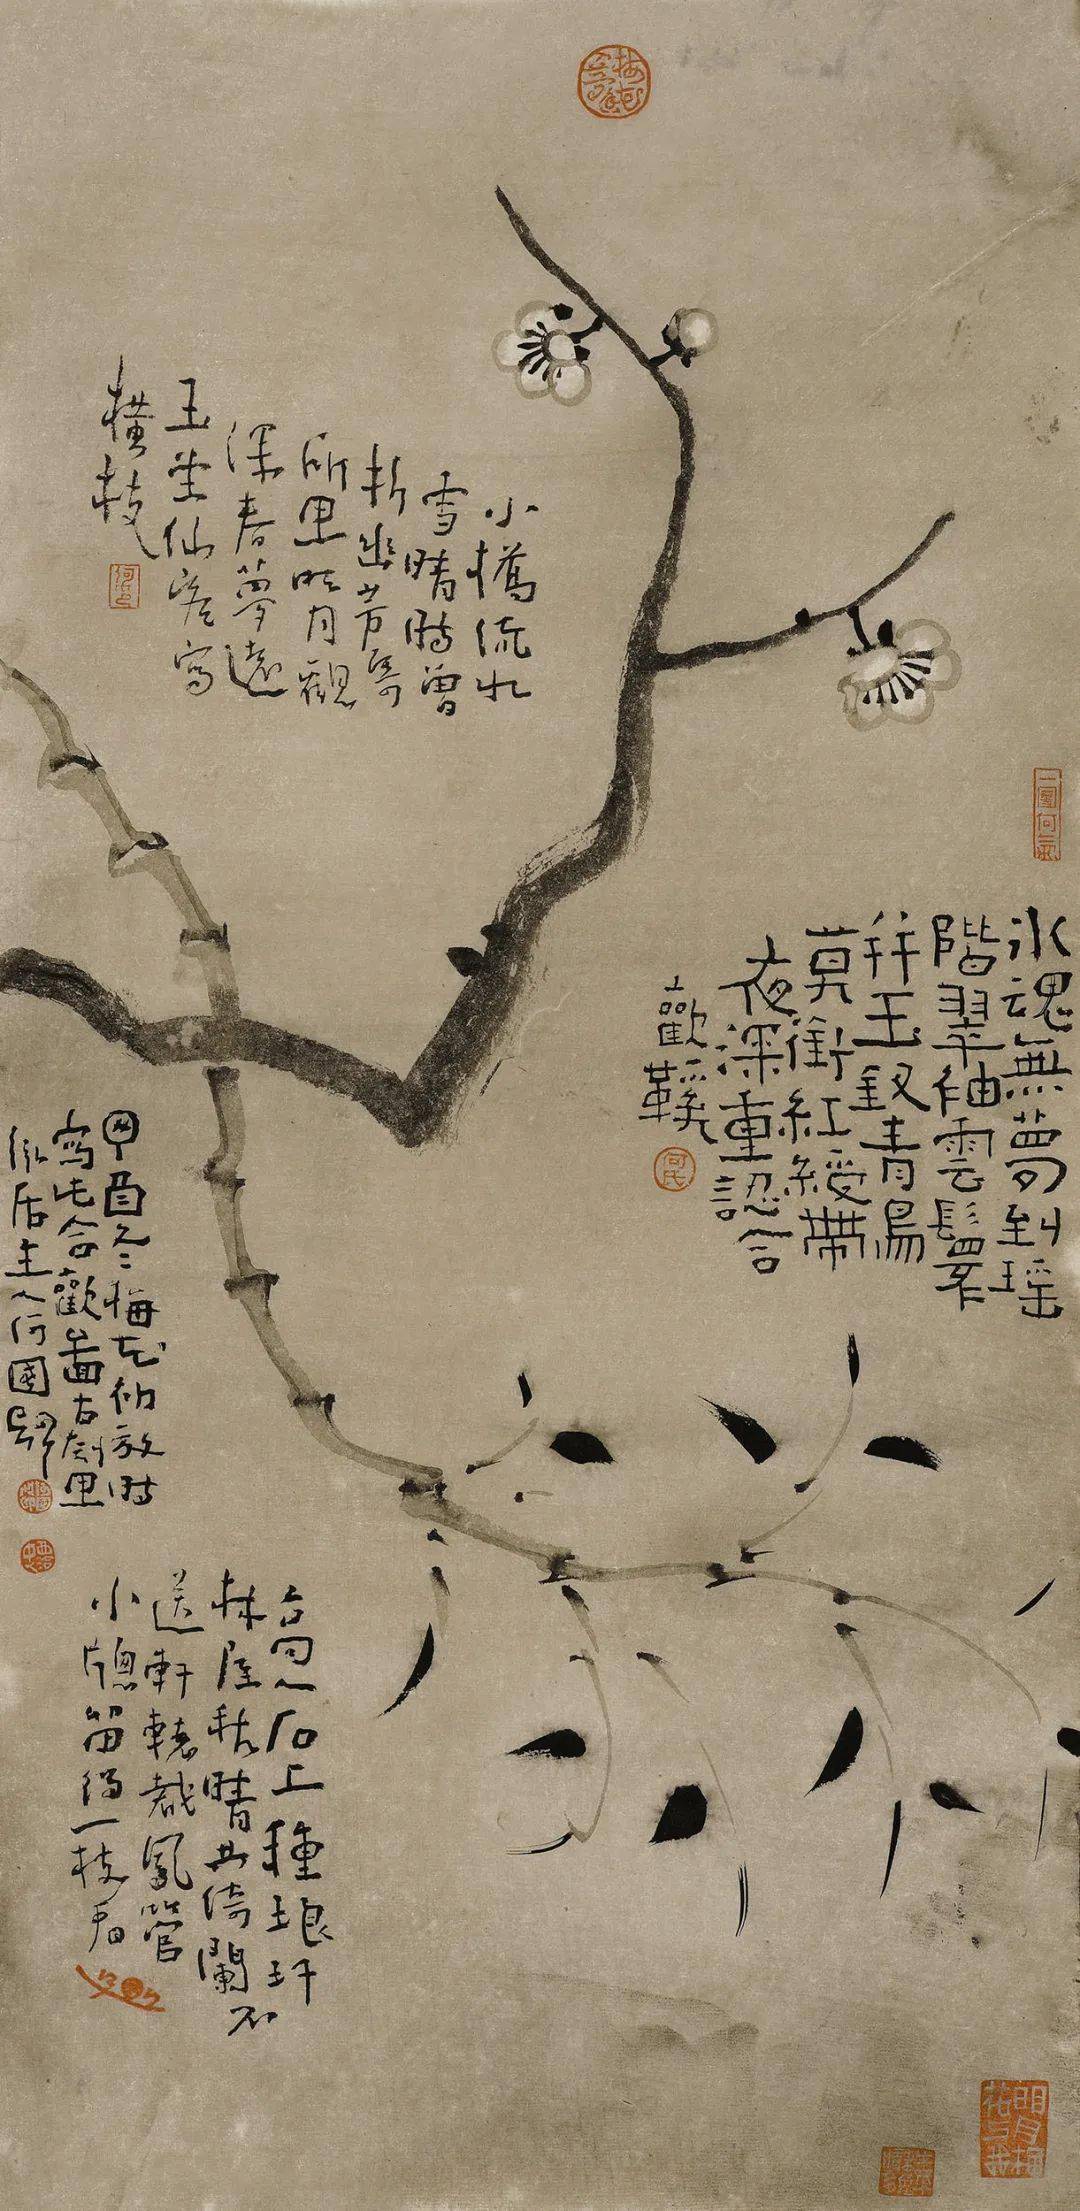 小橋流水
雪晴時曾
折幽芳寄
所思明月觀
深春夢遠
玉堂仙客寫
橫枝
冰魂無夢到瑤
階翠袖雲鬟罢
并玉釵青鳥
莫銜紅綬帶
夜深重認合
歡鞋
酉冬梅花初放時
寫此合歡圖古剡思
居主人何國
高人石上種琅玕
林屋秋晴共倚闌不
送軒轅裁鳳管
小牕留得一枝看
何氏